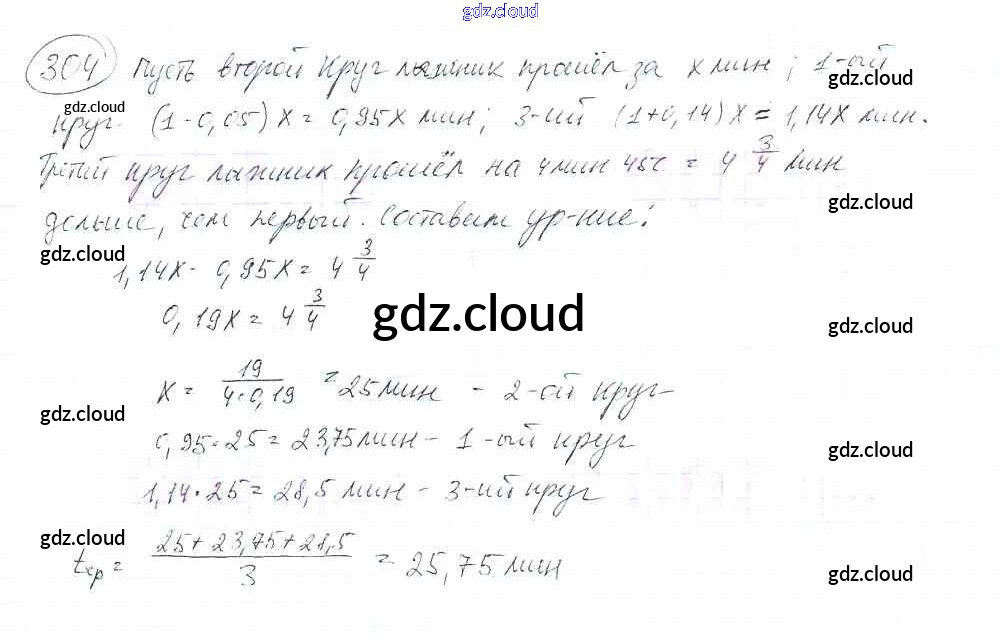 gdz.cloud
304 Пусть второй круг лыжник прошёл за x мин; 1-ый
gdz.cloud gdz.cloud
круг (1-0,05)x = 0,95x мин; 3-ий (1+0,14)x = 1,14x мин.
Третий круг лыжник прошёл на 4 мин 45с = 4 3/4 мин
gdz.cloud
дольше, чем первый. Составим ур-ние:
gdz.cloud
1,14x - 0,95x = 4 3/4
0,19x = 4 3/4
gdz.cloud gdz.cloud
x = 19/(4·0,19) = 25 мин - 2-ой круг
gdz.cloud
0,95·25 = 23,75 мин - 1-ый круг
gdz.cloud
1,14·25 = 28,5 мин - 3-ий круг
gdz.cloud
tср = (25+23,75+28,5)/3 = 25,75 мин
gdz.cloud